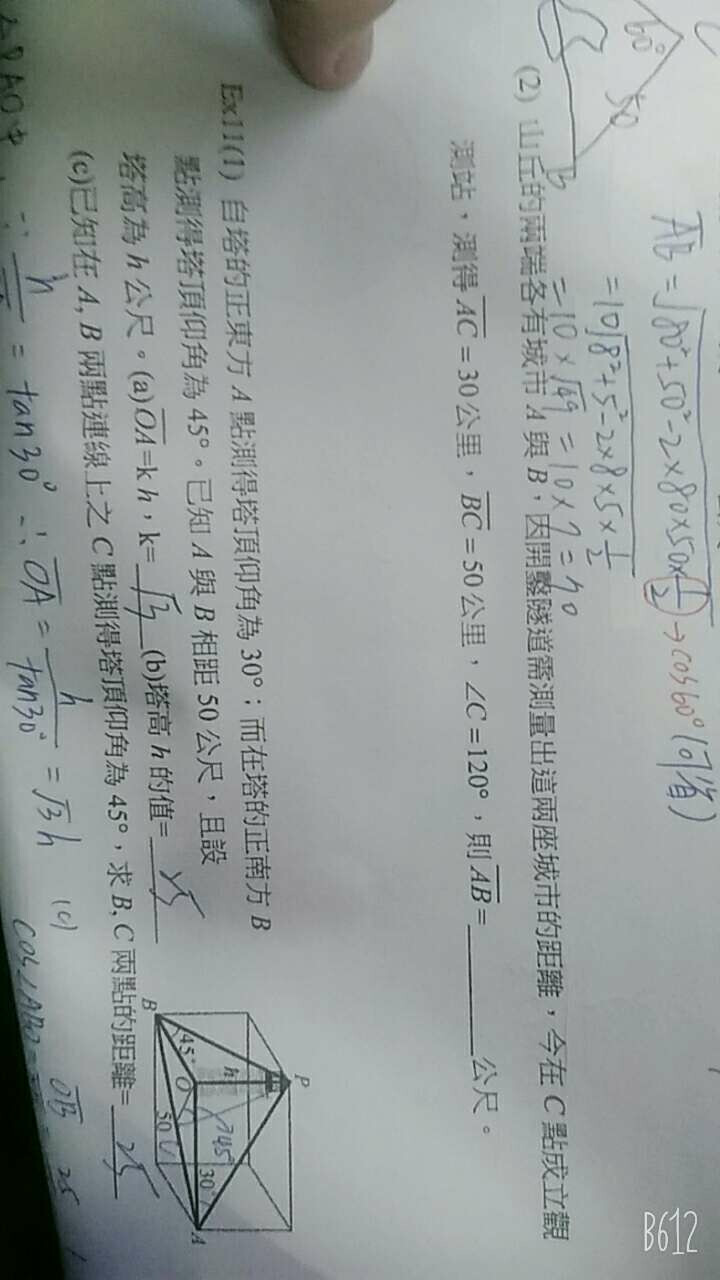 60°
50
B
AB = √80²+50²-2×80×50×1/2 → cos60° (可省)
= 10√8²+5²-2×8×5×1/2
= 10×√49 = 10×7 = 70
(2) 山丘的兩端各有城市 A 與 B，因開鑿隧道需測量出這兩座城市的距離，今在 C 點成立觀
測站，測得 AC = 30 公里，BC = 50 公里，∠C = 120°，則 AB = ______ 公尺。
Ex11(1) 自塔的正東方 A 點測得塔頂仰角為 30°；而在塔的正南方 B
點測得塔頂仰角為 45°。已知 A 與 B 相距 50 公尺，且設
塔高為 h 公尺。(a) OA=k h，k= √3 (b)塔高 h 的值= 25
(c)已知在 A, B 兩點連線上之 C 點測得塔頂仰角為 45°，求 B, C 兩點的距離= 25
P
h
45°
B
45°
O
50
C
30°
A
△PAO中
∵ h = tan30° ∴ OA = h/tan30° = √3 h
(c)
cos∠ABO =
OB
25